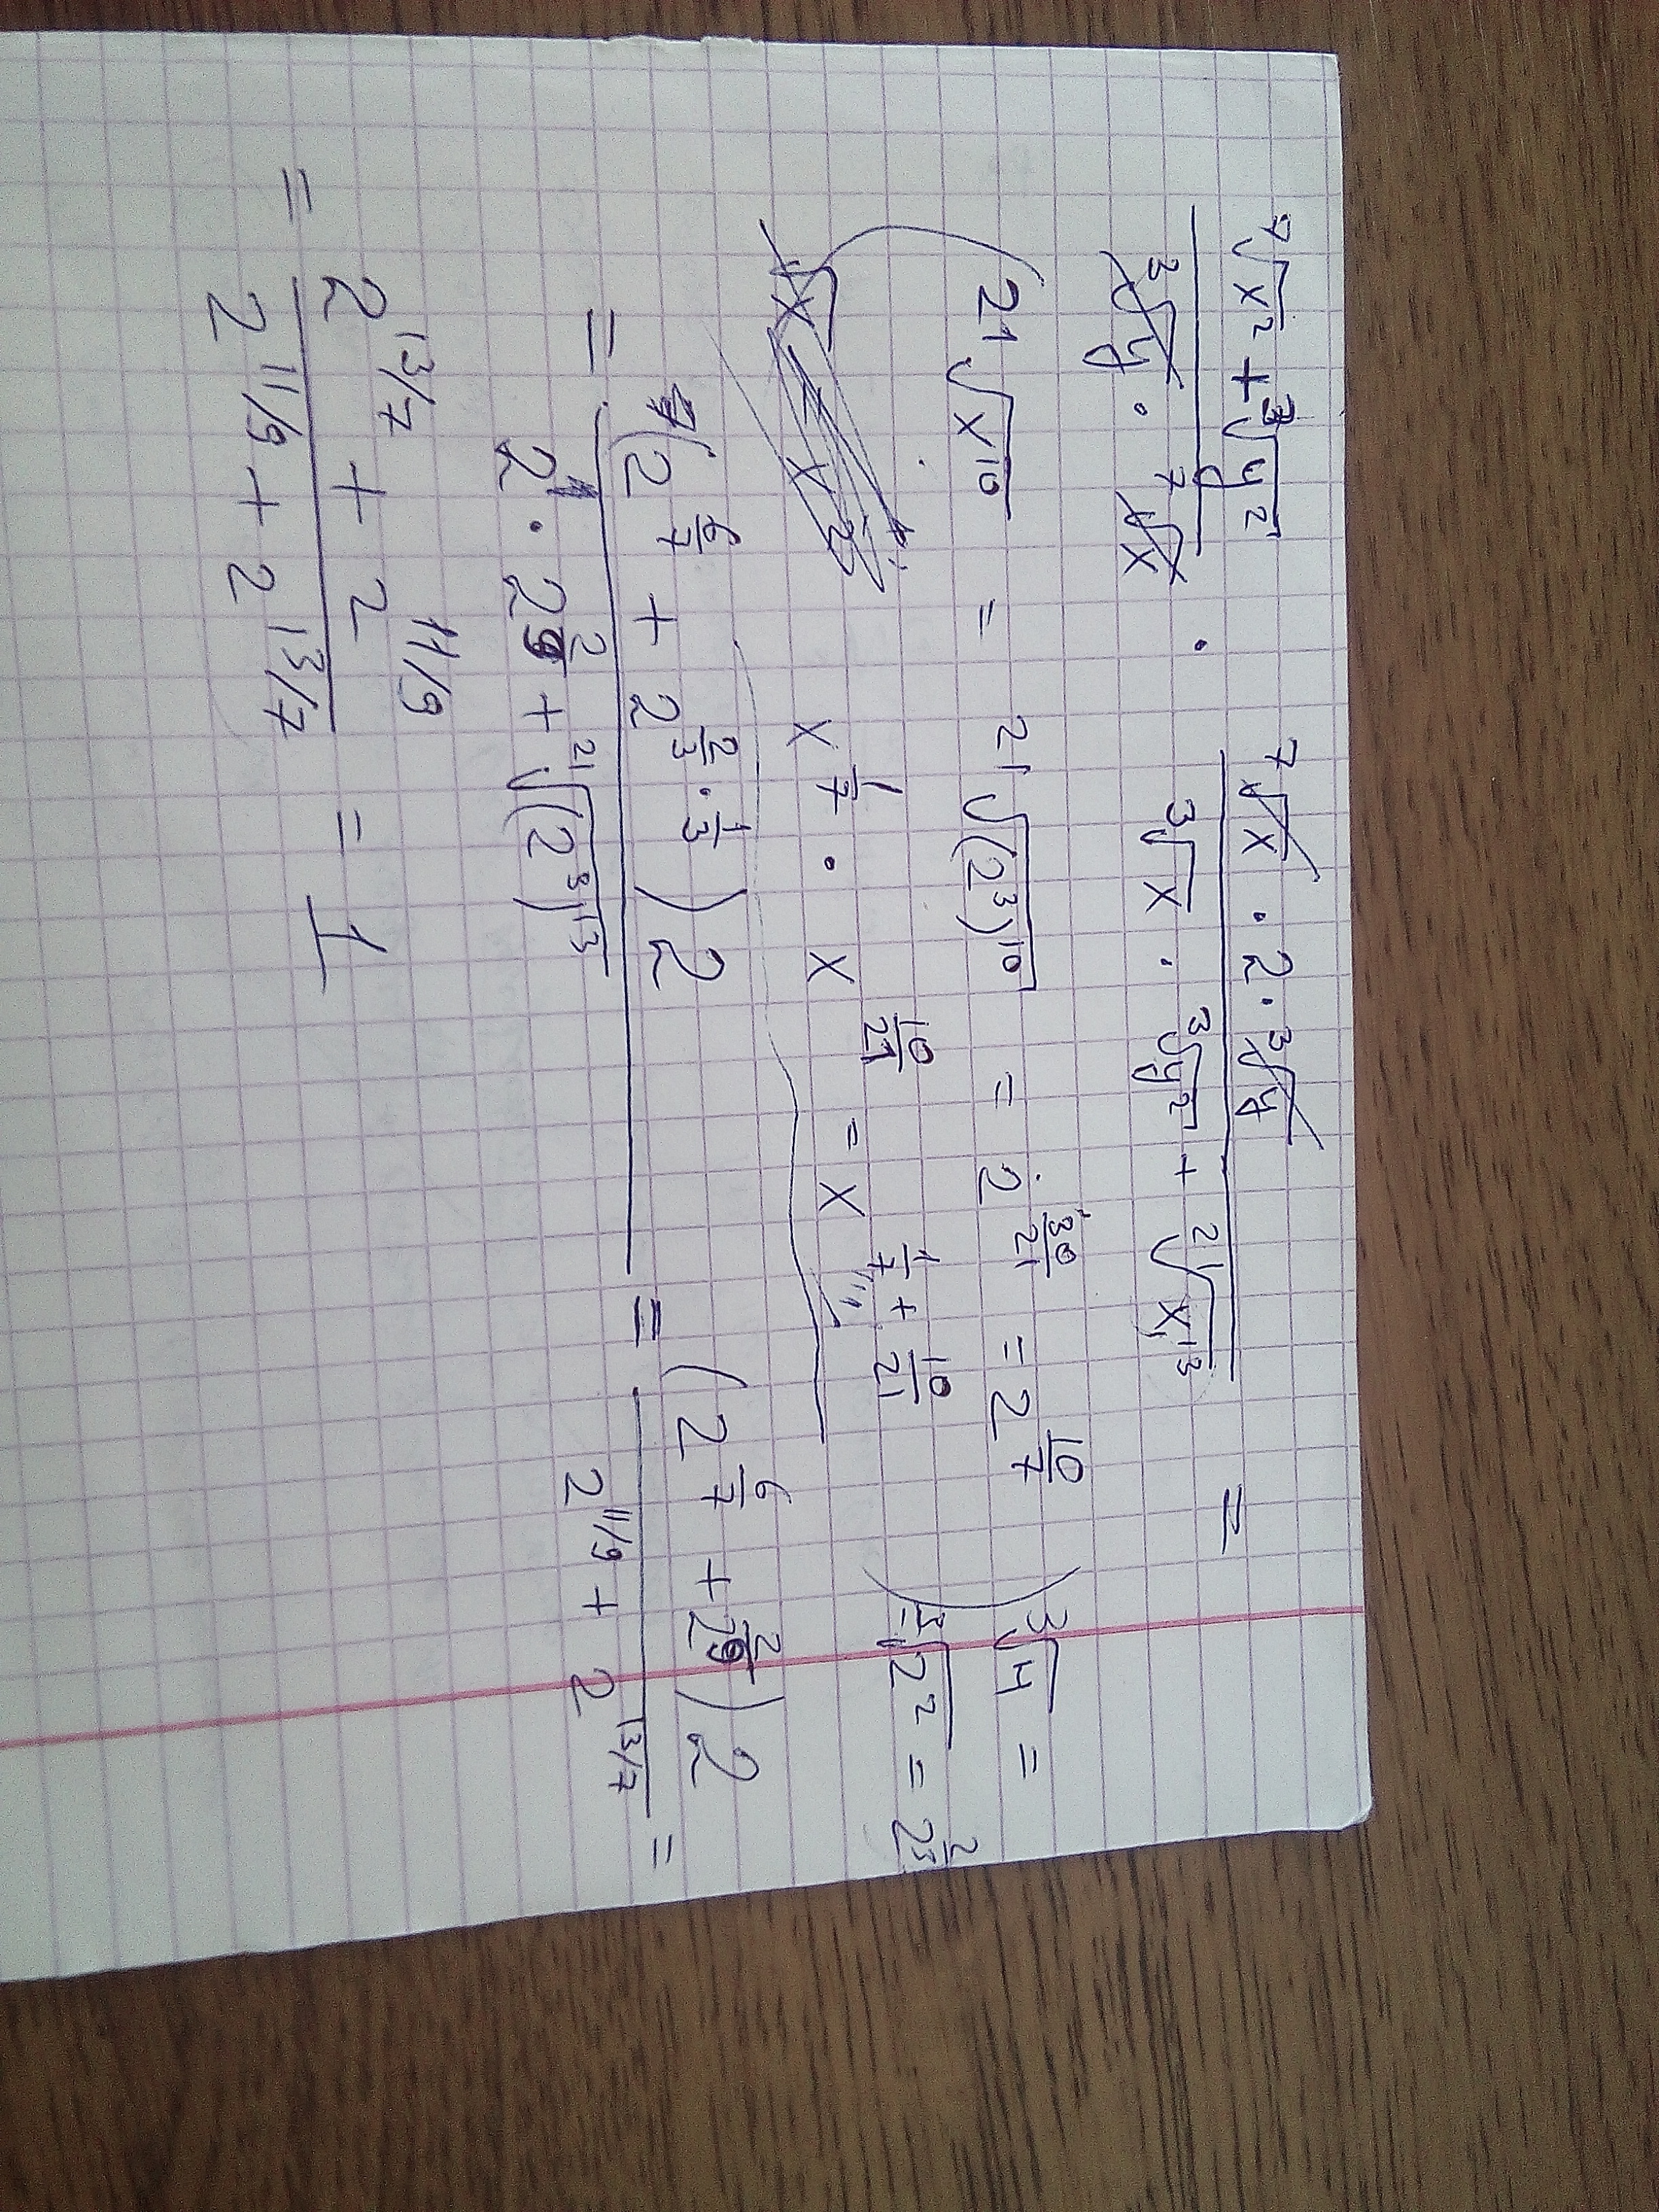 (⁷√x² + ³√y²)/(³√y · ⁷√x) · (⁷√x · 2 · ³√y)/(³√x · ³√y² + ²¹√x¹³) =
²¹√x¹⁰ = ²¹√(2³)¹⁰ = 2^(30/21) = 2^(10/7) ³√4 =
x^(1/7) · x^(10/21) = x^(1/7 + 10/21) = ³√2² = 2^(2/3)
= ((2^(6/7) + 2^(2/3 · 1/3)) 2)/(2¹ · 2^(2/9) + ²¹√(2³)¹³) = ((2^(6/7) + 2^(2/9)) 2)/(2^(11/9) + 2^(13/7)) =
= (2^(13/7) + 2^(11/9))/(2^(11/9) + 2^(13/7)) = 1